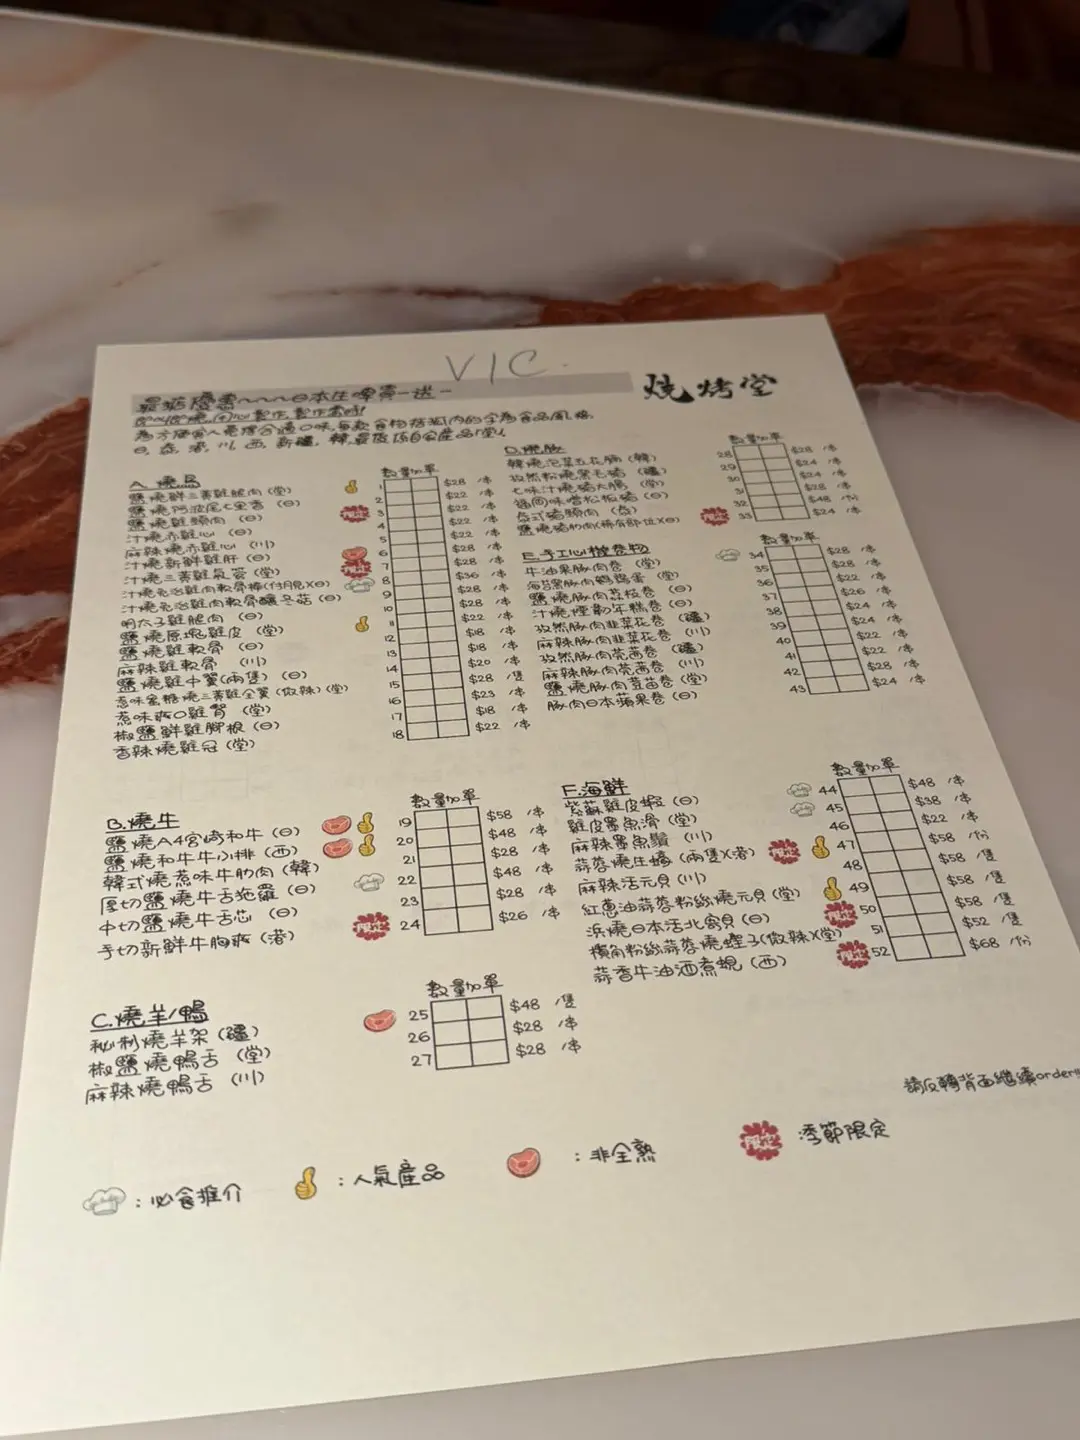 VIC.
燒烤堂
最新優惠~~~日本生啤買一送一
A. 燒鳥
數量加單
鹽燒鮮三黃雞腿肉 (堂) 1 $28 /串
鹽燒阿波尾七里香 (日) 2 $22 /串
鹽燒雞頸肉 (日) 3 $22 /串
汁燒赤雞心 (日) 4 $22 /串
麻辣燒赤雞心 (川) 5 $22 /串
汁燒新鮮雞肝 (日) 6 $28 /串
汁燒三黃雞氣管 (堂) 7 $28 /串
汁燒免治雞肉軟骨棒(付月見)(日) 8 $36 /串
汁燒免治雞肉軟骨釀冬菇 (日) 9 $28 /串
明太子雞腿肉 (日) 10 $28 /串
鹽燒原塊雞皮 (堂) 11 $22 /串
鹽燒雞軟骨 (日) 12 $18 /串
麻辣雞軟骨 (川) 13 $18 /串
鹽燒雞中翼(兩隻) (日) 14 $20 /串
惹味蜜糖燒三黃雞全翼 (微辣) (堂) 15 $28 /隻
惹味爽口雞腎 (堂) 16 $23 /串
椒鹽鮮雞腳根 (日) 17 $18 /串
香辣燒雞冠 (堂) 18 $22 /串
B. 燒牛
數量加單
鹽燒A4宮崎和牛 (日) 19 $58 /串
鹽燒和牛牛小排 (西) 20 $48 /串
韓式燒惹味牛肋肉 (韓) 21 $28 /串
厚切鹽燒牛舌拖羅 (日) 22 $48 /串
中切鹽燒牛舌芯 (日) 23 $28 /串
手切新鮮牛胸爽 (港) 24 $26 /串
C. 燒羊/鴨
數量加單
秘制燒羊架 (疆) 25 $48 /隻
椒鹽燒鴨舌 (堂) 26 $28 /串
麻辣燒鴨舌 (川) 27 $28 /串
D. 燒豚
數量加單
韓燒泡菜五花腩 (韓) 28 $28 /串
孜然粉燒黑毛豬 (疆) 29 $24 /串
七味汁燒豬大腸 (堂) 30 $24 /串
福岡味噌松板豬 (日) 31 $28 /串
泰式豬頸肉 (泰) 32 $48 /份
鹽燒豬肋肉(稀有部位)(日) 33 $24 /串
E. 手工心機卷物
數量加單
牛油果豚肉卷 (堂) 34 $28 /串
海苔豚肉鵪鶉蛋 (堂) 35 $24 /串
鹽燒豚肉荔枝卷 (日) 36 $22 /串
汁燒煙韌年糕卷 (日) 37 $26 /串
孜然豚肉韭菜花卷 (疆) 38 $24 /串
麻辣豚肉韭菜花卷 (川) 39 $24 /串
孜然豚肉芫茜卷 (疆) 40 $22 /串
麻辣豚肉芫茜卷 (川) 41 $22 /串
鹽燒豚肉荳苗卷 (堂) 42 $28 /串
豚肉日本蘋果卷 (日) 43 $24 /串
F. 海鮮
數量加單
紫蘇雞皮蝦 (日) 44 $48 /串
雞皮墨魚滑 (堂) 45 $38 /串
麻辣墨魚鬚 (川) 46 $22 /串
蒜蓉燒生蠔 (兩隻)(港) 47 $58 /份
麻辣活元貝 (川) 48 $58 /隻
紅蔥油蒜蓉粉絲燒元貝 (堂) 49 $58 /隻
浜燒日本活北寄貝 (日) 50 $58 /隻
欖角粉絲蒜蓉燒蟶子(微辣)(堂) 51 $52 /隻
蒜香牛油酒煮蜆 (西) 52 $68 /份
請反轉背面繼續order!!!
:必食推介
:人氣產品
:非全熟
限定 季節限定